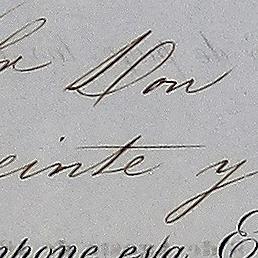 Don
einte y
npone esta